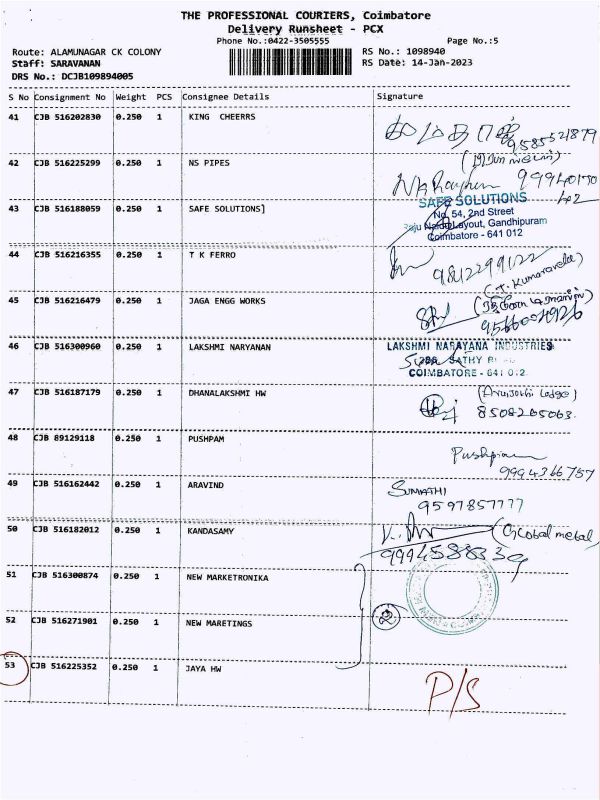 THE PROFESSIONAL COURIERS, Coimbatore
Delivery Runsheet - PCX
Phone No.:0422-3505555
Page No.:5
Route: ALAMUNAGAR CK COLONY
RS No.: 1098940
Staff: SARAVANAN
RS Date: 14-Jan-2023
DRS No.: DCJB109894005
S No Consignment No Weight PCS Consignee Details Signature
41 CJB 516202830 0.250 1 KING CHEERRS
9585521879
42 CJB 516225299 0.250 1 NS PIPES
43 CJB 516188059 0.250 1 SAFE SOLUTIONS]
SAFE SOLUTIONS
No. 54, 2nd Street
Raju Naidu Layout, Gandhipuram
Coimbatore - 641 012
44 CJB 516216355 0.250 1 T K FERRO
9812299122
(T. Kumaravelu)
45 CJB 516216479 0.250 1 JAGA ENGG WORKS
46 CJB 516300960 0.250 1 LAKSHMI NARYANAN
LAKSHMI NARAYANA INDUSTRIES
SATHY
COIMBATORE - 641 012
47 CJB 516187179 0.250 1 DHANALAKSHMI HW
8508205063.
48 CJB 89129118 0.250 1 PUSHPAM
Pushpam
9994366757
49 CJB 516162442 0.250 1 ARAVIND
SUMATHI
9597857777
50 CJB 516182012 0.250 1 KANDASAMY
(Global metal)
51 CJB 516300874 0.250 1 NEW MARKETRONIKA
52 CJB 516271901 0.250 1 NEW MARETINGS
2
53 CJB 516225352 0.250 1 JAYA HW
P/S